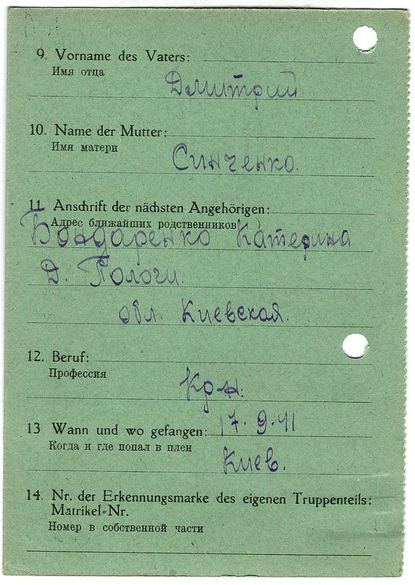 9. Vorname des Vaters:
Имя отца
Дмитрий
10. Name der Mutter:
Имя матери
Синченко.
11. Anschrift der nächsten Angehörigen:
Адрес ближайших родственников
Бондаренко Катерина
Д. Пологи.
обл. Киевская.
12. Beruf:
Профессия
Кр-н.
13 Wann und wo gefangen: 17.9.41
Когда и где попал в плен
Киев.
14. Nr. der Erkennungsmarke des eigenen Truppenteils:
Matrikel-Nr.
Номер в собственной части